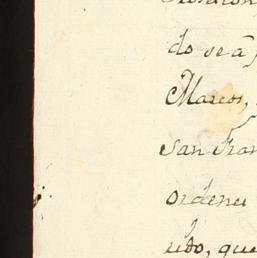 do se á
Marcos,
San Fran
ordenes
uso, que